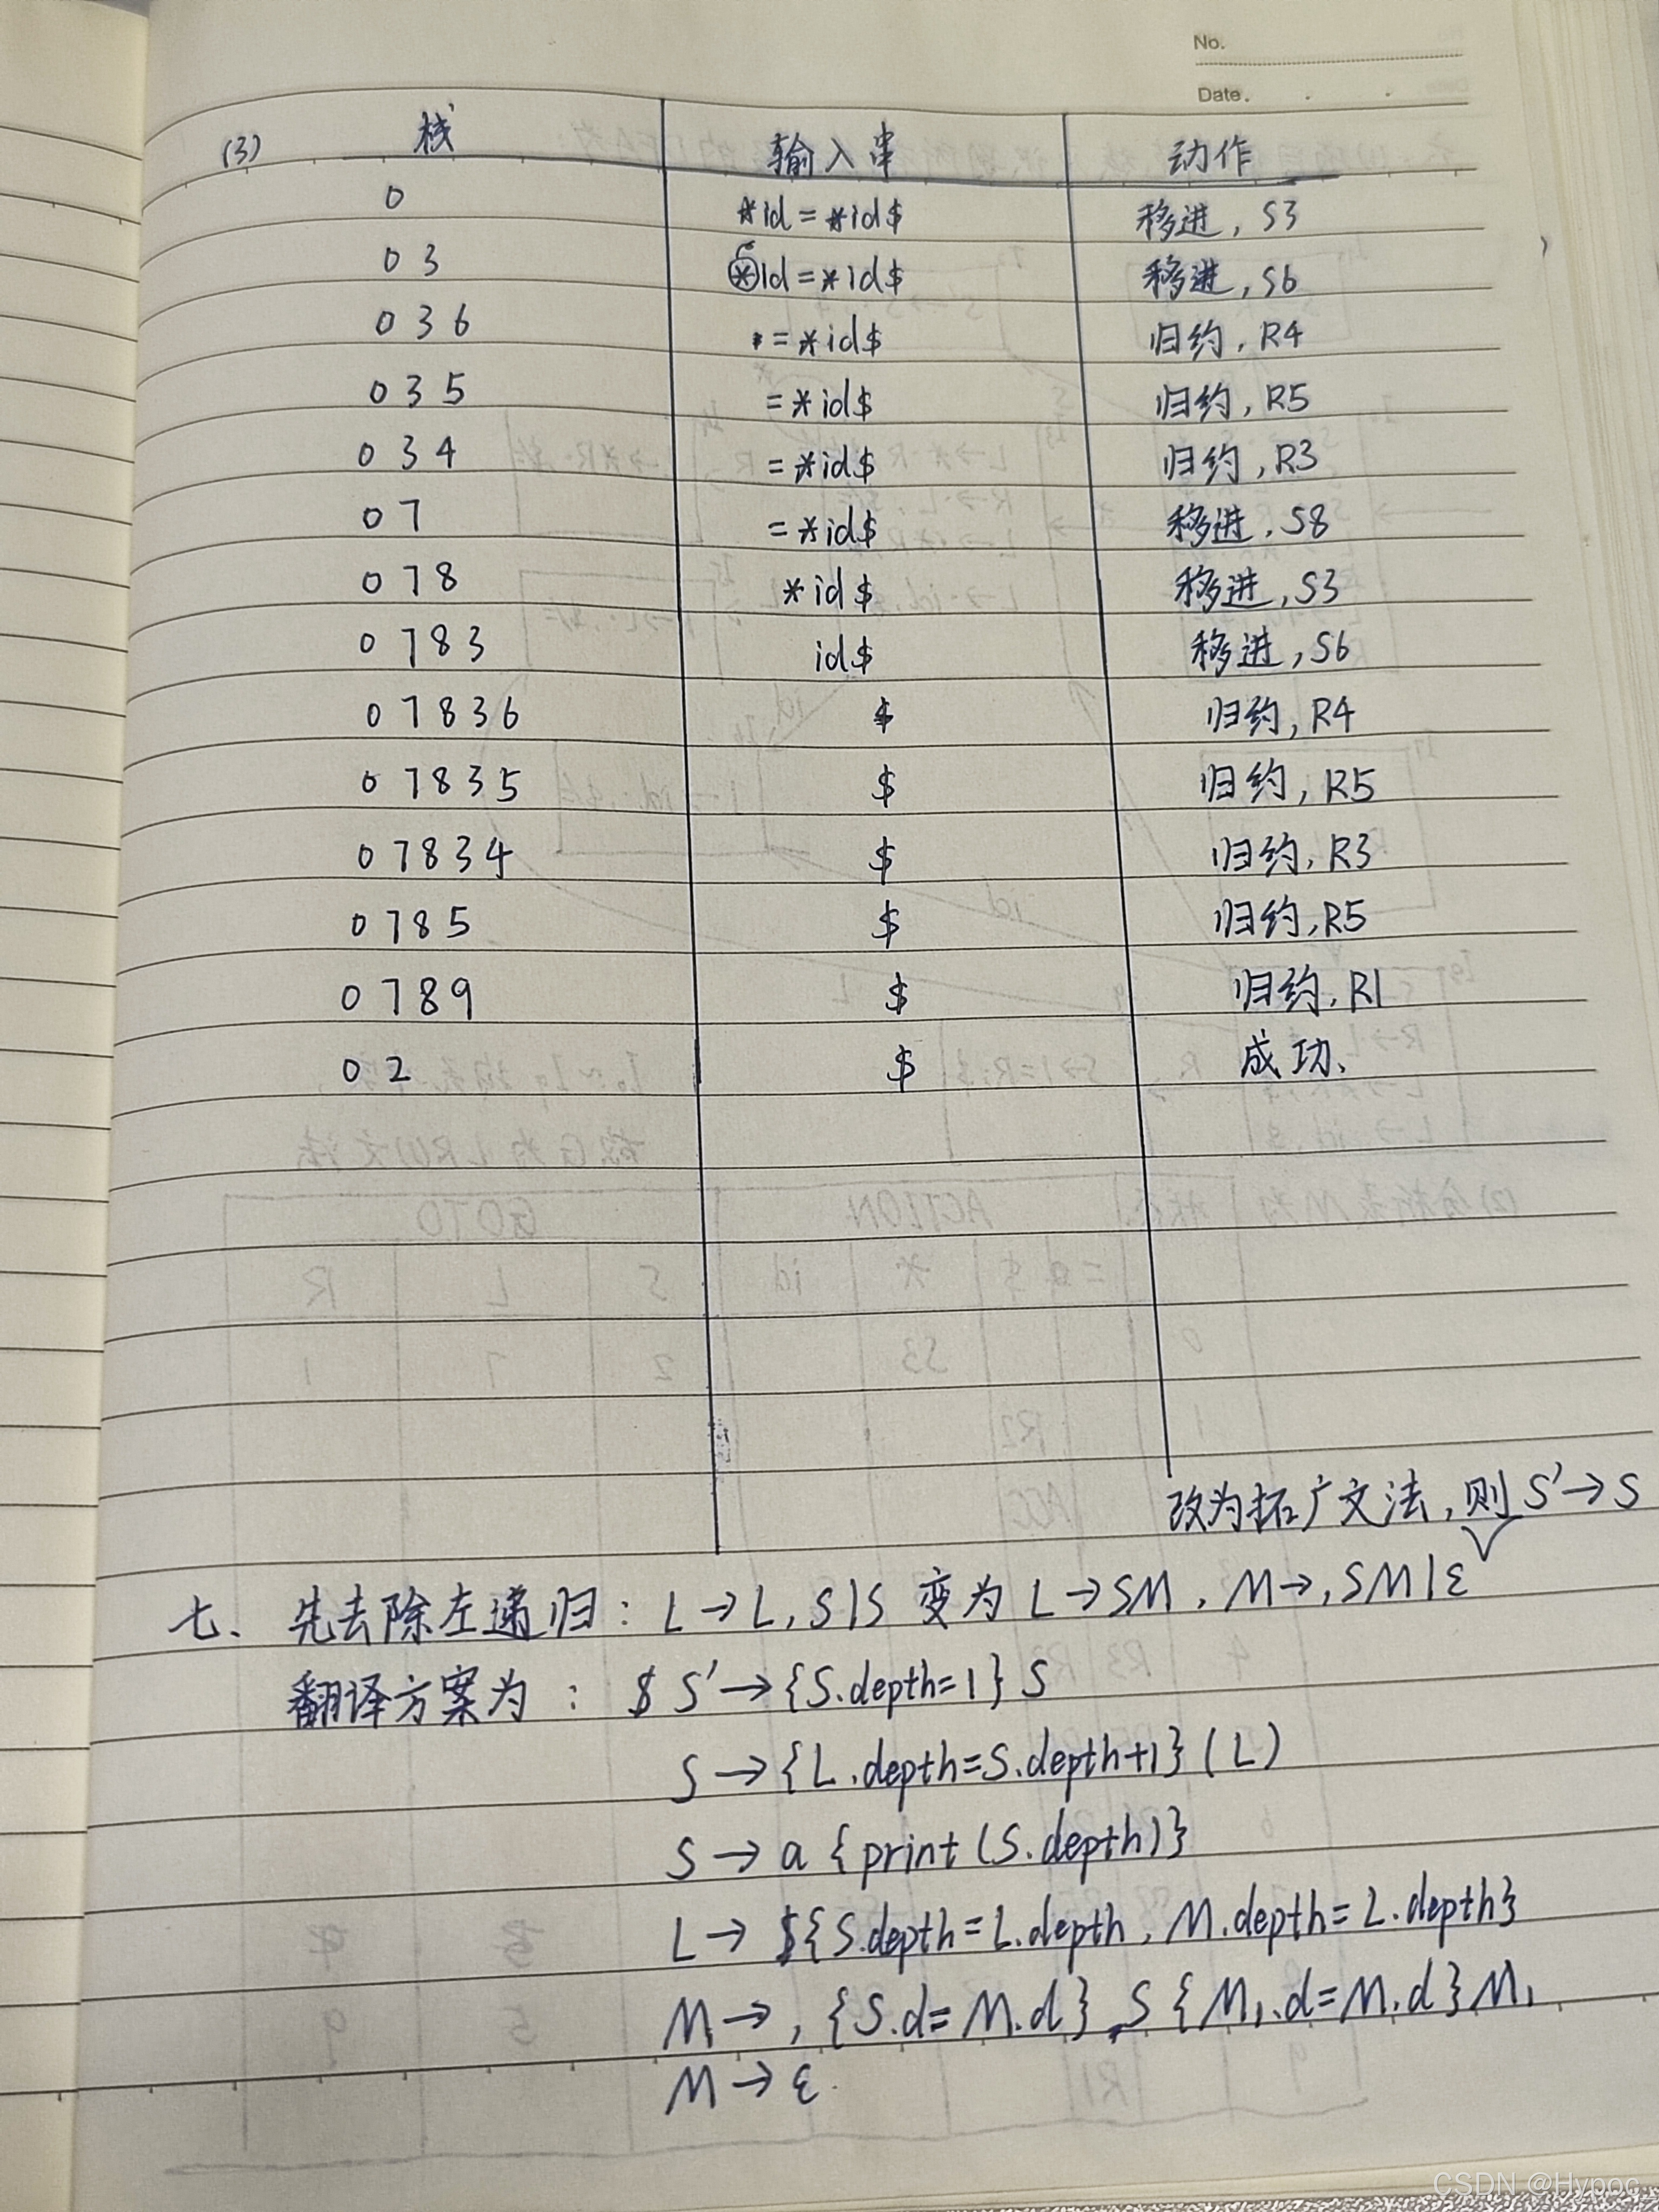 No.
Date.
(3) 栈 输入串 动作
0 *id=*id$ 移进, S3
03 id=*id$ 移进, S6
036 =*id$ 归约, R4
035 =*id$ 归约, R5
034 =*id$ 归约, R3
07 =*id$ 移进, S8
078 *id$ 移进, S3
0783 id$ 移进, S6
07836 $ 归约, R4
07835 $ 归约, R5
07834 $ 归约, R3
0785 $ 归约, R5
0789 $ 归约, R1
02 $ 成功、
改为拓广文法, 则 S'→S
七、先去除左递归: L→L,S|S 变为 L→SM, M→,SM|ε
翻译方案为: S'→{S.depth=1} S
S→{L.depth=S.depth+1}(L)
S→a{print(S.depth)}
L→{S.depth=L.depth, M.depth=L.depth}
M→,{S.d=M.d} S {M₁.d=M.d}M₁
M→ε
CSDN @Hypoc